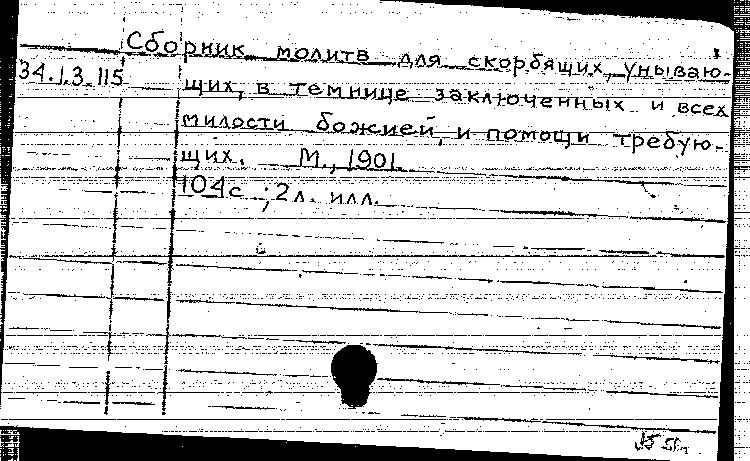 Сборник молитв для скорбящих, унываю-
34.1.3.115 щих, в темнице заключенных и всех
милости божией, и помощи требую-
щих. М., 1901
104с ; 2л. илл.